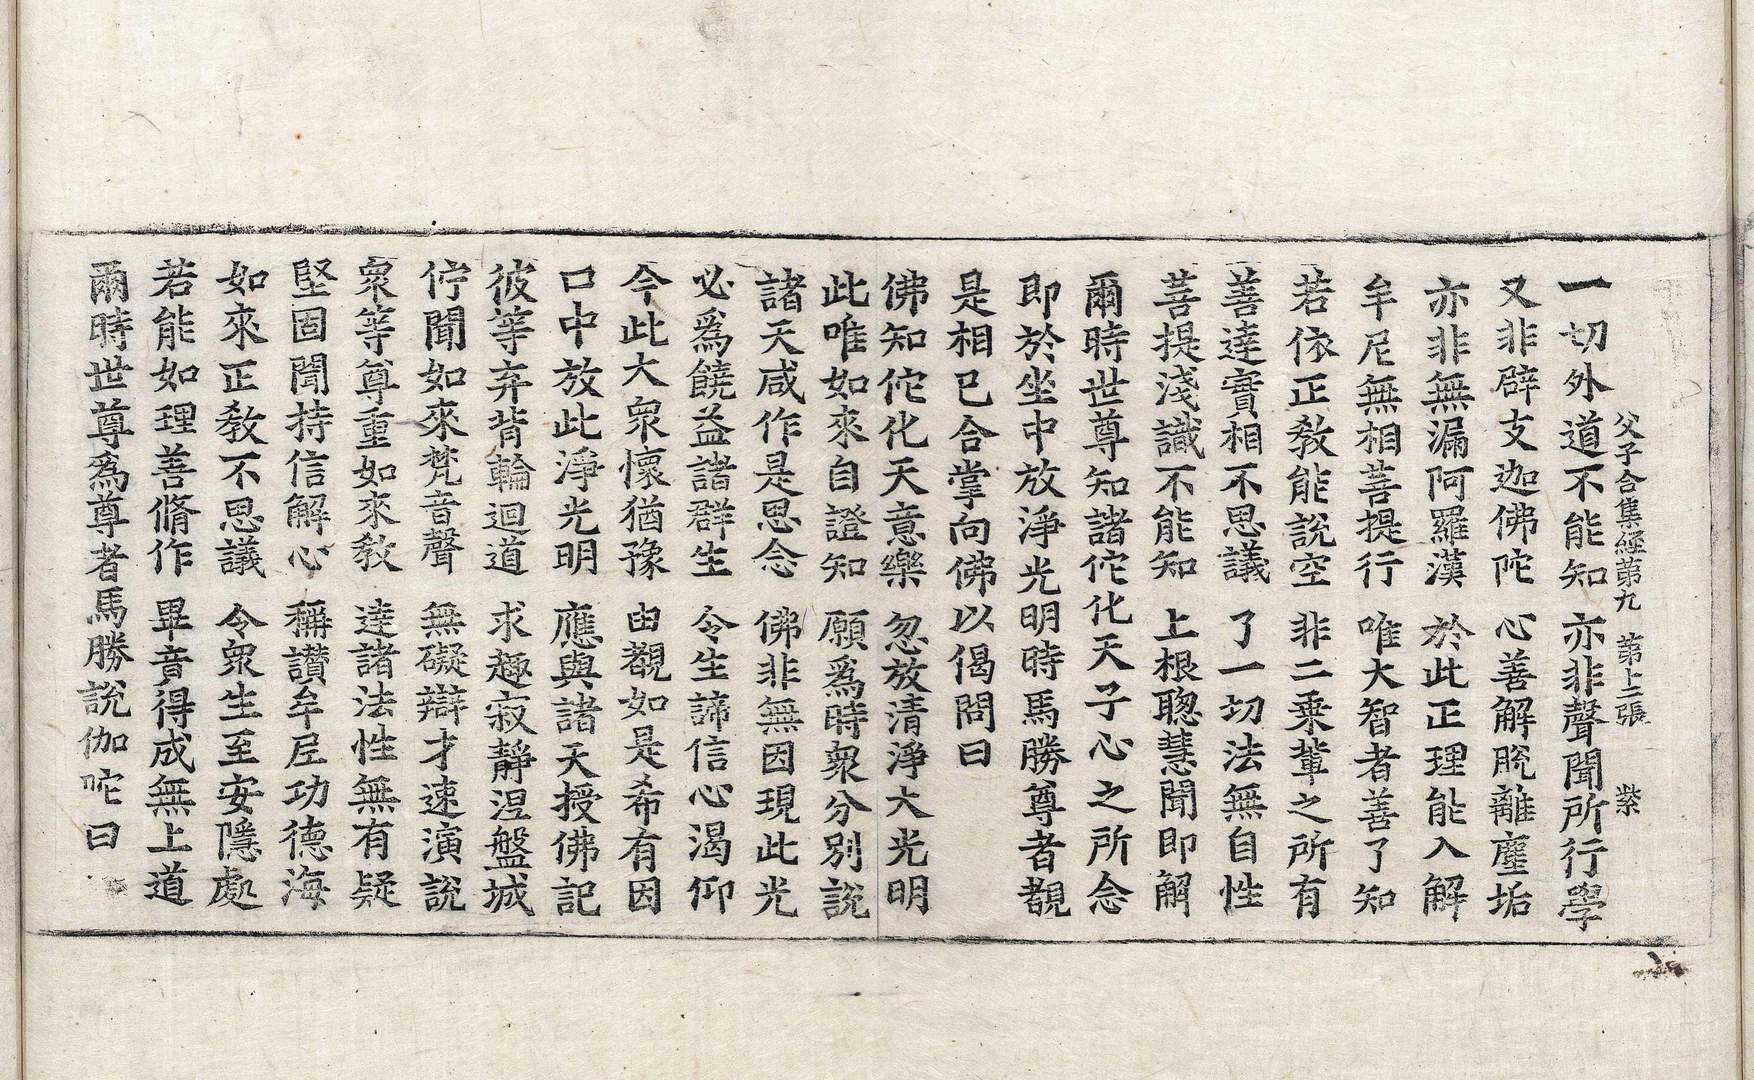 父子合集經第九 第十二張 紫
一切外道不能知 亦非聲聞所行學
又非辟支迦佛陀 心善解脫離塵垢
亦非無漏阿羅漢 於此正理能入解
牟尼無相菩提行 唯大智者善了知
若依正教能說空 非二乗軰之所有
善達實相不思議 了一切法無自性
菩提淺識不能知 上根聦慧聞即解
爾時世尊知諸佗化天子心之所念
即於坐中放淨光明時馬勝尊者覩
是相已合掌向佛以偈問曰
佛知佗化天意樂 忽放清淨大光明
此唯如來自證知 願為時衆分別說
諸天咸作是思念 佛非無因現此光
必為饒益諸群生 令生諦信心渴仰
今此大衆懷猶豫 由覩如是希有因
口中放此淨光明 應與諸天授佛記
彼等弃背輪迴道 求趣寂靜涅盤城
佇聞如來梵音聲 無礙辯才速演說
衆等尊重如來教 達諸法性無有疑
堅固聞持信解心 稱讃牟尼功德海
如來正教不思議 令衆生至安隱處
若能如理善脩作 畢竟得成無上道
爾時世尊為尊者馬勝說伽陀曰